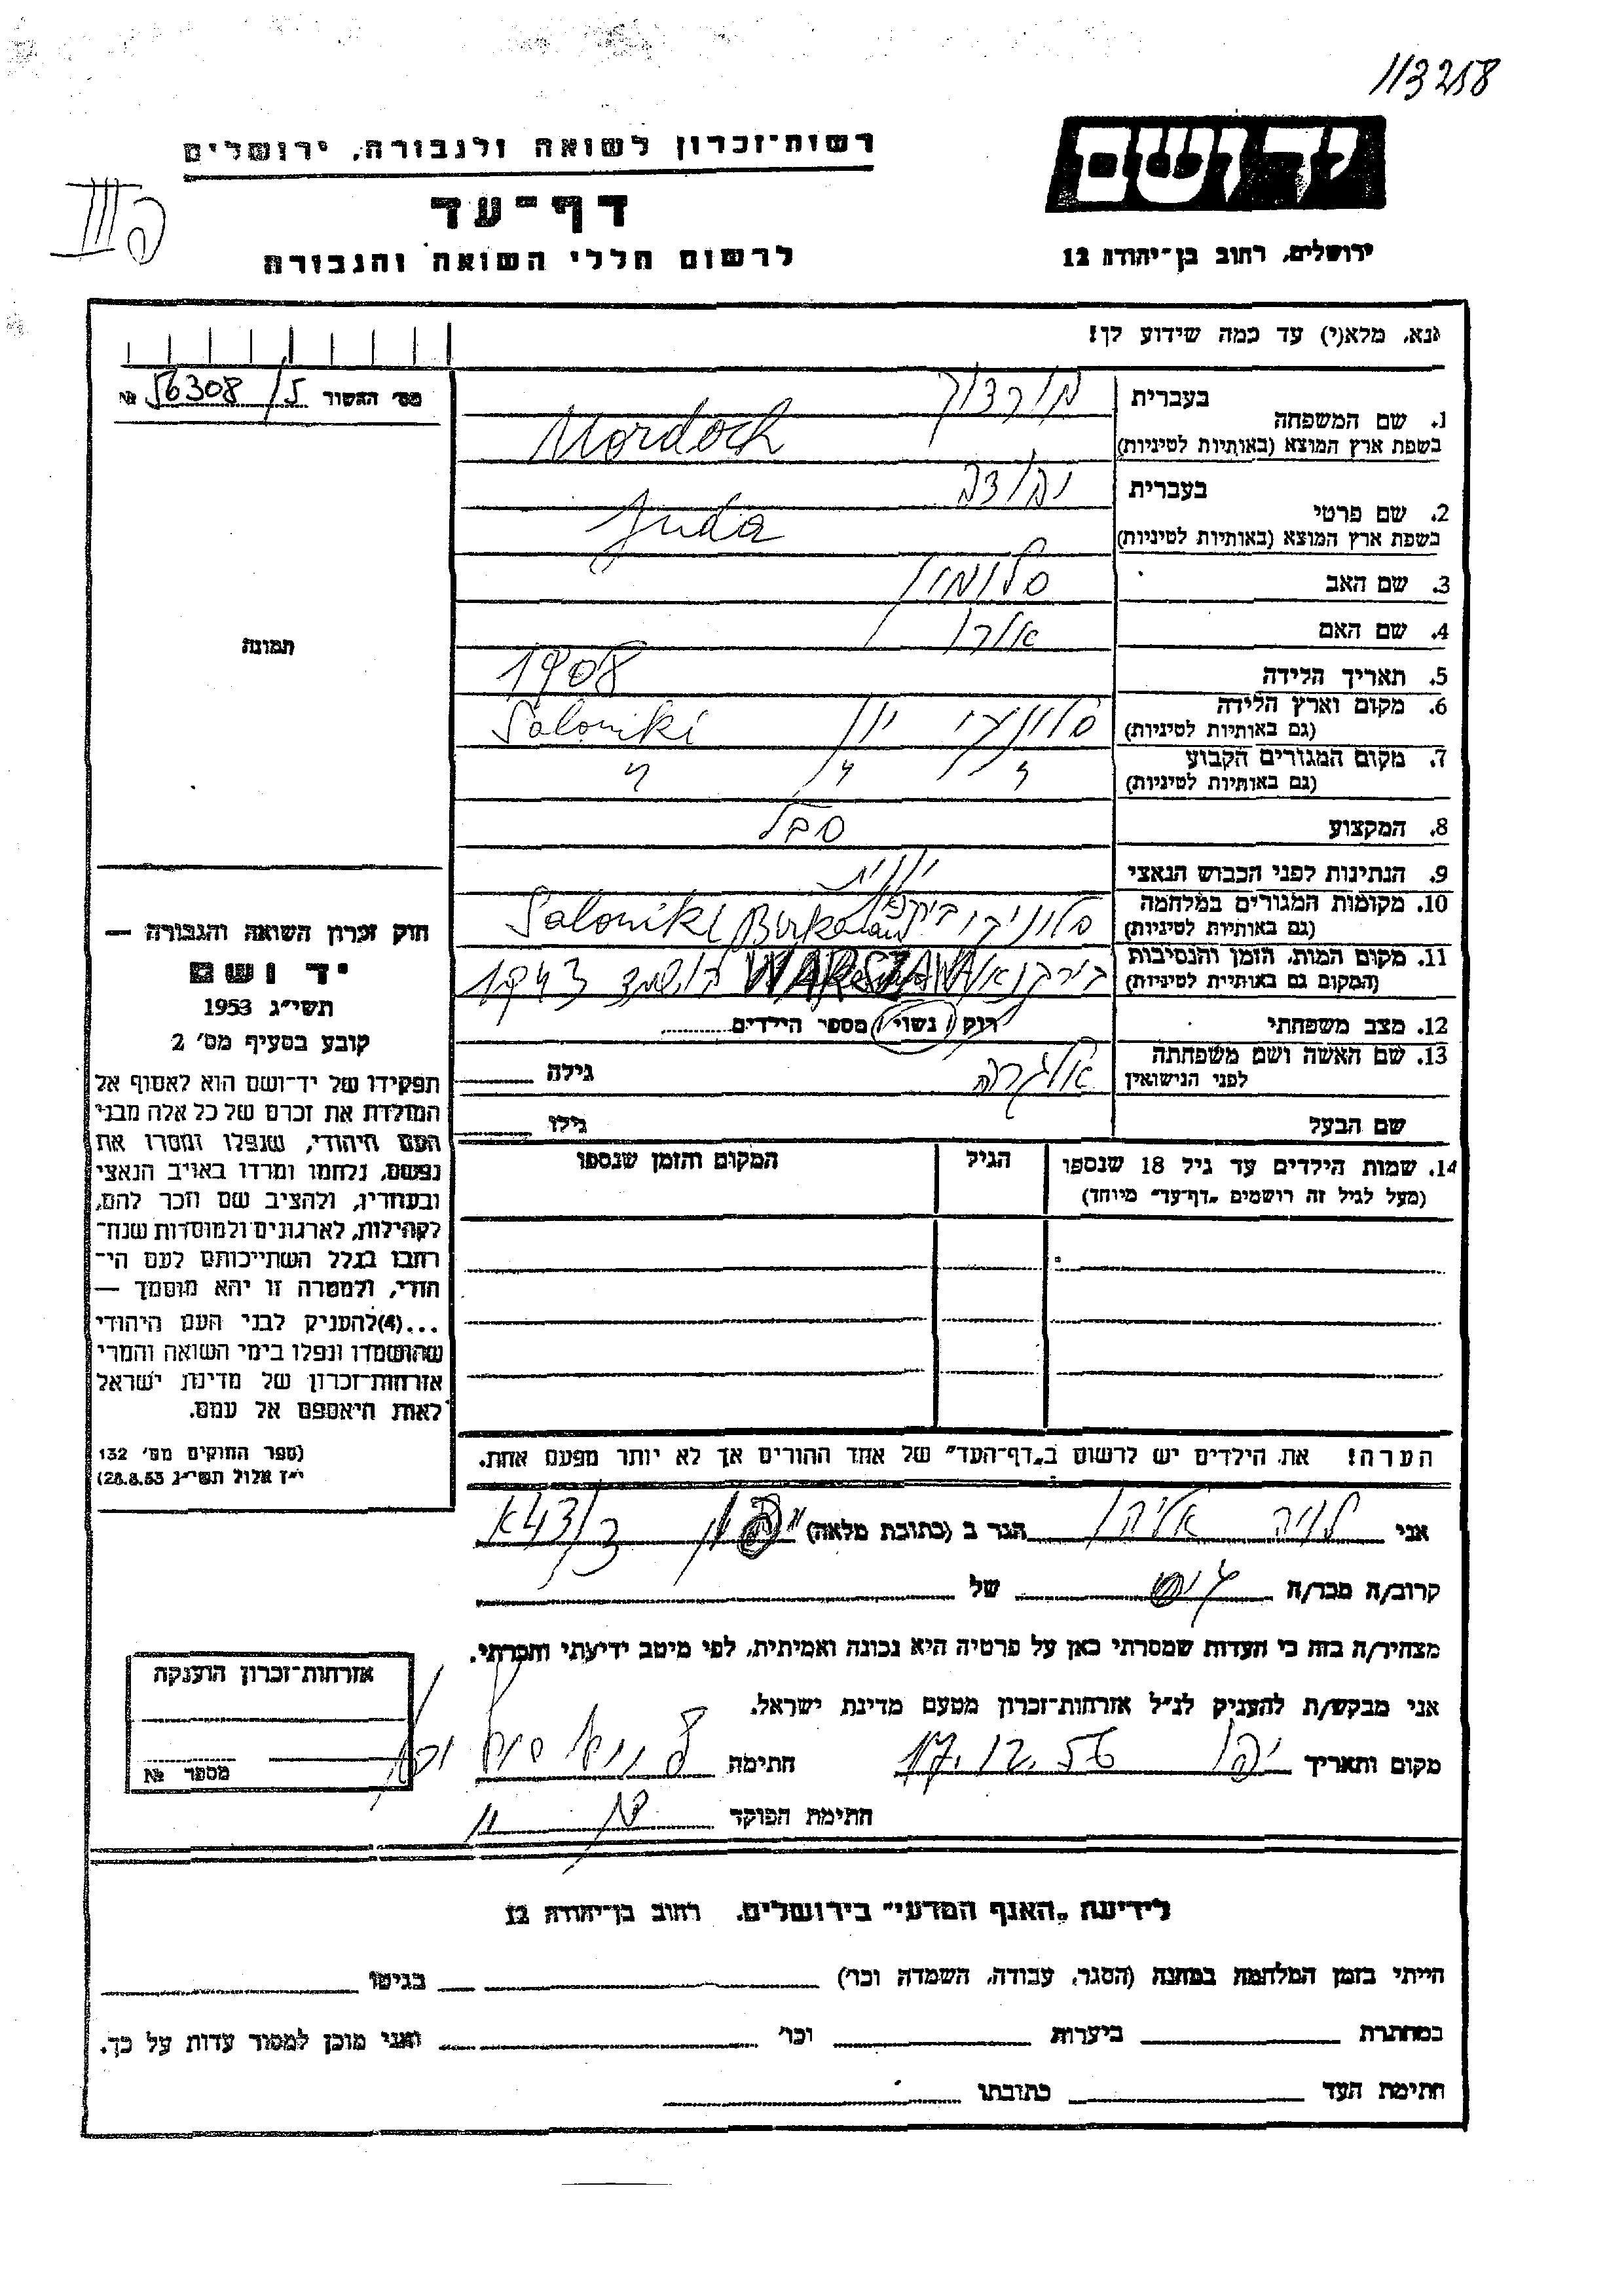 113258
יד ושם
רשות־זכרון לשואה ולגבורה, ירושלים
דף־עד
לרשום חללי השואה והגבורה
ירושלים, רחוב בן־יהודה 12
III ק
נא, מלא(י) עד כמה שידוע לך!
מס׳ האשור 56308/5 №
1. שם המשפחה
בעברית מורדוך
בשפת ארץ המוצא (באותיות לטיניות) Mordoch
2. שם פרטי
בעברית יהודה
בשפת ארץ המוצא (באותיות לטיניות) Juda
3. שם האב סלומון
4. שם האם
5. תאריך הלידה 1908
6. מקום וארץ הלידה
(גם באותיות לטיניות) סלוניקי יון Saloniki
7. מקום המגורים הקבוע
(גם באותיות לטיניות) " " "
8. המקצוע סבל
9. הנתינות לפני הכבוש הנאצי יונית
10. מקומות המגורים במלחמה
(גם באותיות לטיניות) סלוניקי Saloniki
11. מקום המות, הזמן והנסיבות
(המקום גם באותיות לטיניות) WARSZAWA הושמד 1943
12. מצב משפחתי רוק / נשוי / מספר הילדים
13. שם האשה ושם משפחתה
לפני הנישואין אלגרה גילה
שם הבעל גילו
14. שמות הילדים עד גיל 18 שנספו
(מעל לגיל זה רושמים „דף־עד״ מיוחד)
הגיל
המקום והזמן שנספו
הערה! את הילדים יש לרשום ב„דף־העד״ של אחד ההורים אך לא יותר מפעם אחת.
תמונה
חוק זכרון השואה והגבורה —
יד ושם
תשי״ג 1953
קובע בסעיף מס׳ 2
תפקידו של יד־ושם הוא לאסוף אל
המולדת את זכרם של כל אלה מבני
העם היהודי, שנפלו ומסרו את
נפשם, נלחמו ומרדו באויב הנאצי
ובעוזריו, ולהציב שם וזכר להם,
לקהילות, לארגונים ולמוסדות שנח־
רחבו בגלל השתייכותם לעם הי־
הודי, ולמטרה זו יהא מוסמך —
...(4)להעניק לבני העם היהודי
שהושמדו ונפלו בימי השואה והמרי
אזרחות־זכרון של מדינת ישראל
לאות היאספם אל עמם.
(ספר החוקים מס׳ 132
י״ז אלול תשי״ג 28.8.53)
אני לויה אליהו הגר ב (כתובת מלאה)
קרוב/ה מכר/ה של
מצהיר/ה בזה כי העדות שמסרתי כאן על פרטיה היא נכונה ואמיתית, לפי מיטב ידיעתי והכרתי.
אני מבקש/ת להעניק לנ״ל אזרחות־זכרון מטעם מדינת ישראל.
מקום ותאריך יפו 17.12.56 חתימה
חתימת הפוקד
אזרחות־זכרון הוענקה
מספר №
לידיעת „האגף המדעי״ בירושלים, רחוב בן־יהודה 12
הייתי בזמן המלחמה במחנה (הסגר, עבודה, השמדה וכו׳) בגיטו
במחתרת ביערות וכו׳ ואני מוכן למסור עדות על כך.
חתימת העד כתובתו